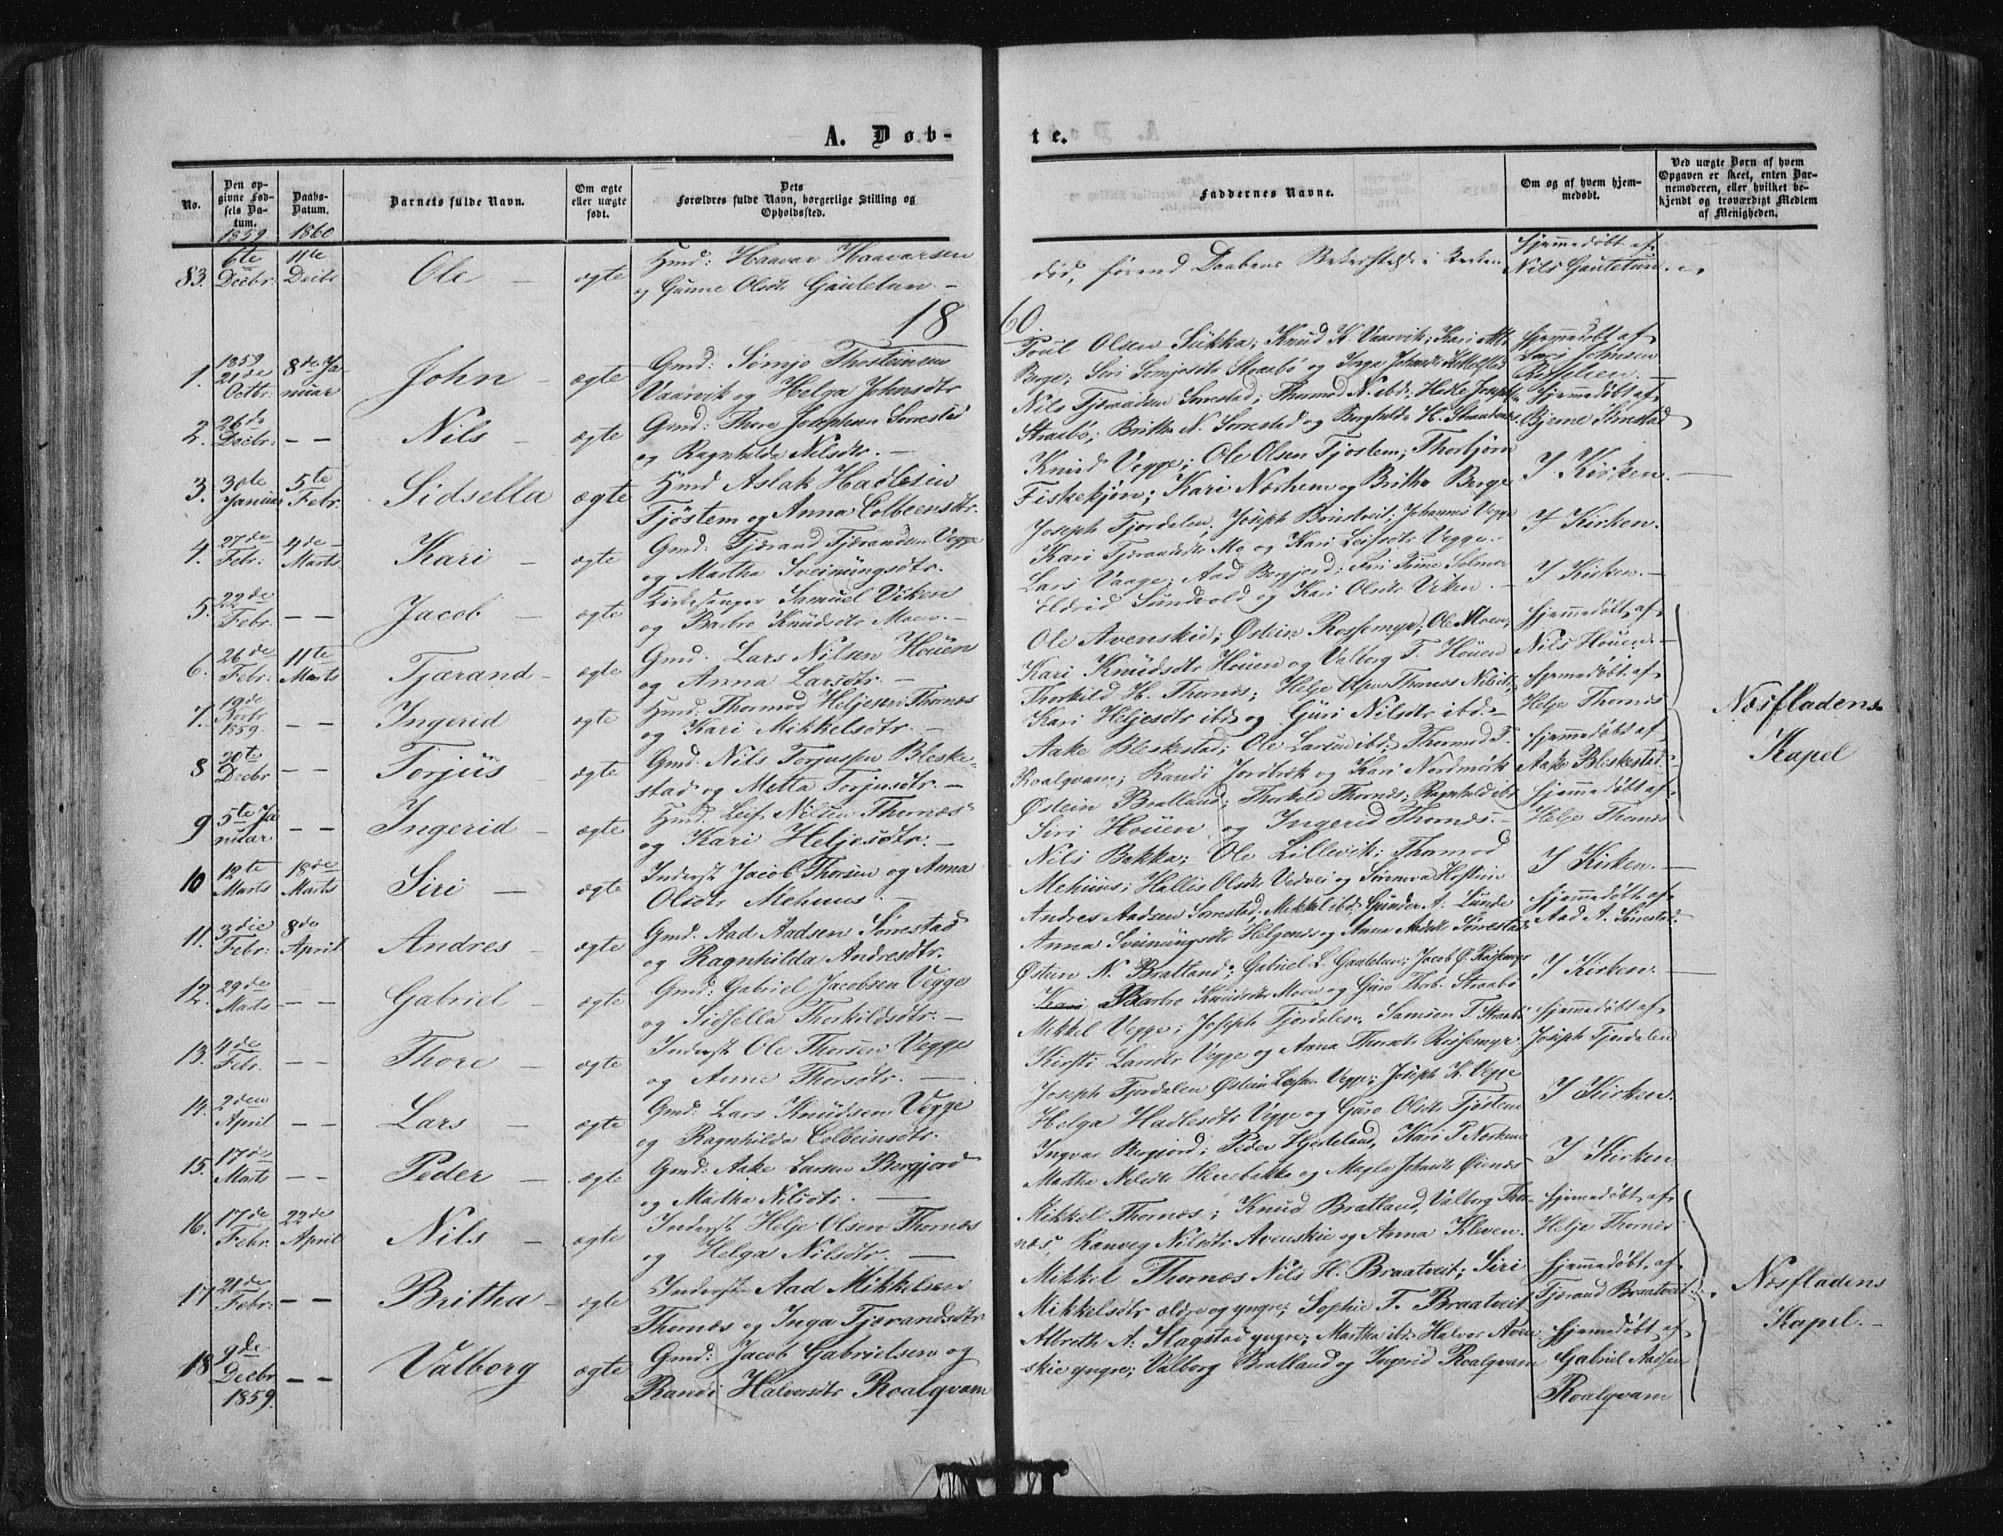 A. Døb-
te.
No.
Den op-
givne Fød-
sels Da-
tum.
Daabs-
Datum.
Barnets fulde Navn.
Om ægte
eller uægte
født.
Dets
Forældres fulde Navn, borgerlige Stilling og
Opholdssted.
Faddernes Navne.
Om og af hvem hjem-
medøbt.
Ved uægte Børn af hvem
Opgaven er skeet, enten Bar-
nemoderen, eller hvilket be-
kjendt og troværdigt Medlem
af Menigheden.
1859 1860
83. 6te Decbr. 11te Decbr Ole – ægte Gmd: Haavar Haavarsen
og Gunne Olsdtr Gautetun –
død, førend Daabens i Kirken
Hjemmedøbt af
Nils Gautetun
1860.
1. 1859 21de Octbr. 8de Januar John – ægte Gmd: Sømjo Thosteinsen
Vaarvik og Helga Johnsdtr
Poul Olsen Sukka; Knud K. Vaarvik; Kari
Berge; Siri Somjosdtr Straabø og Inga
Hjemmedøbt af
Lars Johnsen
2. 26de Decbr: – – Nils – ægte Gmd: Thore Josephsen Sørrestad
og Ragnhilda Nilsdtr. –
Nils Tjæraldsen Sørrestad; Thormod N. ibd;
Straabø; Britha N. Sørrestad og Borghilda H.
Hjemmedøbt af
Bjerne
3. 30te Januar 5te Febr. Sidsella ægte Hmd Aslak Hadlesen
Tjøstem og Anna Colbeensdtr.
Knud Vegge; Ole Olsen Tjøstem; Thorbjörn
Fiskekjøn; Kari Nærhem og Britha Berge
I Kirken. –
4. 27de Febr. 4de Marts Kari – ægte Gmd: Tjærand Tjærandsen Vegge
og Martha Sveinungsdtr.
Joseph Fjordalen; Joseph Brustveit; Johannes Vegge
Kari Tjærandsdtr Mo og Kari Leifsdtr Vegge. –
I Kirken.
5. 22de Febr. – – Jacob – ægte Kirkesanger Samuel Viken
og Barbro Knudsdtr Moen. –
Lars Vaage; Aad Bergjord; Trine Selmer
Eldrid Sundvold og Kari Olsdtr Viken. –
I Kirken. –
6. 26de Febr. 11te Marts Tjærand – ægte Gmd. Lars Nilsen Houen
og Anna Larsdtr. –
Ole Avenskie; Østein Rossemyr; Ole Moen;
Kari Knudsdtr Houen og Valborg T. Houen
Hjemmedøbt af
Nils Houen. –
7. 19de 1859. Ingerid – ægte Hmd. Thormod Heljesen Thornæs
og Kari Mikkelsdtr. –
Thorkild H. Thornæs; Helje Thornæs
Kari Heljesdtr ibd og Guri Nilsdtr ibd. –
Hjemmedøbt af
Helje Thornæs
8 30te Decbr – – Torjus – ægte Gmd. Nils Torjusen Bleske-
stad og Metta Torjusdtr. –
Aake Bleskestad; Ole Larsen ibd; Thormod T.
Roalqvam; Randi Jordbrek og Kari Nordmork
Hjemmedøbt af
Aake Bleskestad. –
9 5te Januar – – Ingerid – ægte Hmd. Leif Nilsen Thornæs
og Kari Heljesdtr. –
Østein Bratland; Thorkild Thornæs; Ragnhild ibd
Siri Houen og Ingerid Thornæs. –
Hjemmedøbt af
Helje Thornæs
Næsfladens
Kapel
10 12te Marts 18de Marts Siri – ægte Inderst Jacob Thorsen og Anna
Olsdtr Mehuus. –
Nils Bakka; Ole Lillevik; Thormod
Mehuus; Hallis Olsdtr Vedvei og
I Kirken. –
11. 3die Febr: 8de April Andres – ægte Gmd: Aad Aadsen Sørrestad
og Ragnhilda Andresdtr.
Andres Aadsen Sørrestad; Mikkel ibd; Gunder A. Lunde
Anna Sveinungsdtr Helgenæs og Anna Sørrestad
Hjemmedøbt af
Aad A. Sørrestad
12. 29de Marts – – Gabriel – ægte Gmd: Gabriel Jacobsen Vegge
og Sidsella Thorkildsdtr: –
Østein N. Bratland; Gabriel L. Gautetun; Jacob Ø. Rossemyr
Kari Barbro Knudsdtr Moen og Guro Straabø
I Kirken. –
13. 4de Febr. – – Thore – ægte Inderst Ole Thorsen Vegge
og Anne Thorsdtr. –
Mikkel Vegge; Joseph Fjordalen; Samson T. Straabø
Vegge og Anna Rossemyr
Hjemmedøbt af
Joseph Fjordalen
14. 2den April – – Lars – ægte Gmd: Lars Knudsen Vegge
og Ragnhilda Colbeinsdtr.
Joseph Fjordalen Østein Vegge; Joseph K. Vegge
Helga Hadlesdtr Vegge og Guro Olsdtr Tjøstem
I Kirken.
15. 17de Marts – – Peder – ægte Gmd: Aake Larsen Bergjord
og Martha Nilsdtr. –
Ingvar Bergjord; Peder Hjerteland, Kari T. Nærhem
Martha Nilsdtr og
I Kirken
16. 17de Febr. 22de April Nils – ægte Inderst Helje Olsen Thornæs
og Helga Nilsdtr. –
Mikkel Thornæs; Knud Bratland, Valborg Thor-
næs; Ranveg Nilsdtr Avenskie og Anna Kleven
Hjemmedøbt af
Helje Thornæs
17 21de Febr: – – Britha – ægte Inderst Aad Mikkelsen
Thornæs og Inga Tjærandsdtr
Mikkel Thornæs Nils H. Braatveit; Siri
Mikkelsdtr ældre og yngre; Sophie T. Braatveit
Hjemmedøbt af
Tjærand Braatveit
18 9de Decbr 1859. – – Valborg ægte Gmd: Jacob Gabrielsen og
Randi Halversdtr Roalqvam
Albreth A. Slagstad yngre; Martha ibd: Halvor Aven-
skie yngre; Valborg Bratland og Ingerid Roalqvam
Hjemmedøbt af
Gabriel Aadsen
Roalqvam
Næsfladens
Kapel. –